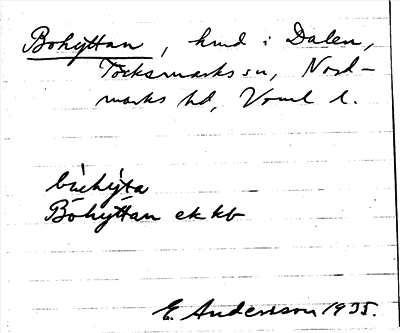 Bohyttan, hmd i Dalen,
Töcksmarks sn, Nord-
marks hd, Vrml l.
bùhỳta
Bohyttan ek kb
E. Andersson 1935.